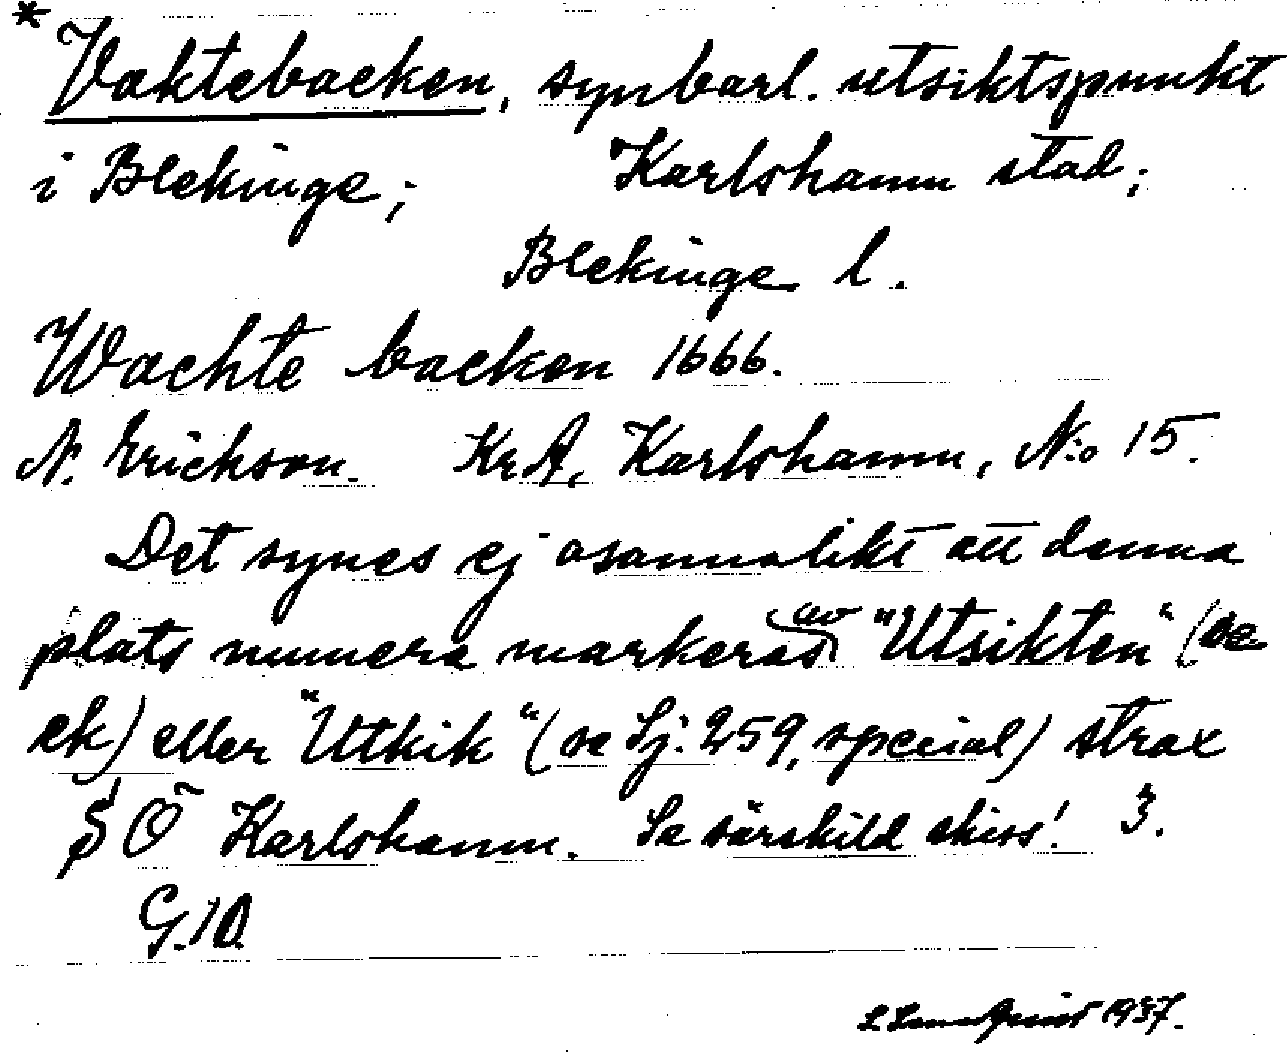 * Vaktebacken, synbarl. utsiktspunkt
i Blekinge; Karlshamn stad;
Blekinge l.
Wachte backen 1666.
N. Erickson. KrA, Karlshamn, N:o 15.
Det synes ej osannolikt att denna
plats numera markeras av "Utsikten" (se
ek) eller "Utkik" (se Sj. 259, special) strax
Ö Karlshamn. Se särskild skiss! 3.
G.10
1937.